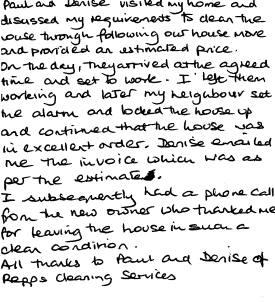 Paul and Denise visited my home and
discussed my requirements to clean the
house through following our house move
and provided an estimated price.
On the day, they arrived at the agreed
time and set to work. I left them
working and later my neighbour set
the alarm and locked the house up
and confirmed that the house was
in excellent order. Denise emailed
me the invoice which was as
per the estimate.
I subsequently had a phone call
from the new owner who thanked me
for leaving the house in such a
clean condition.
All thanks to Paul and Denise of
Repps Cleaning Services